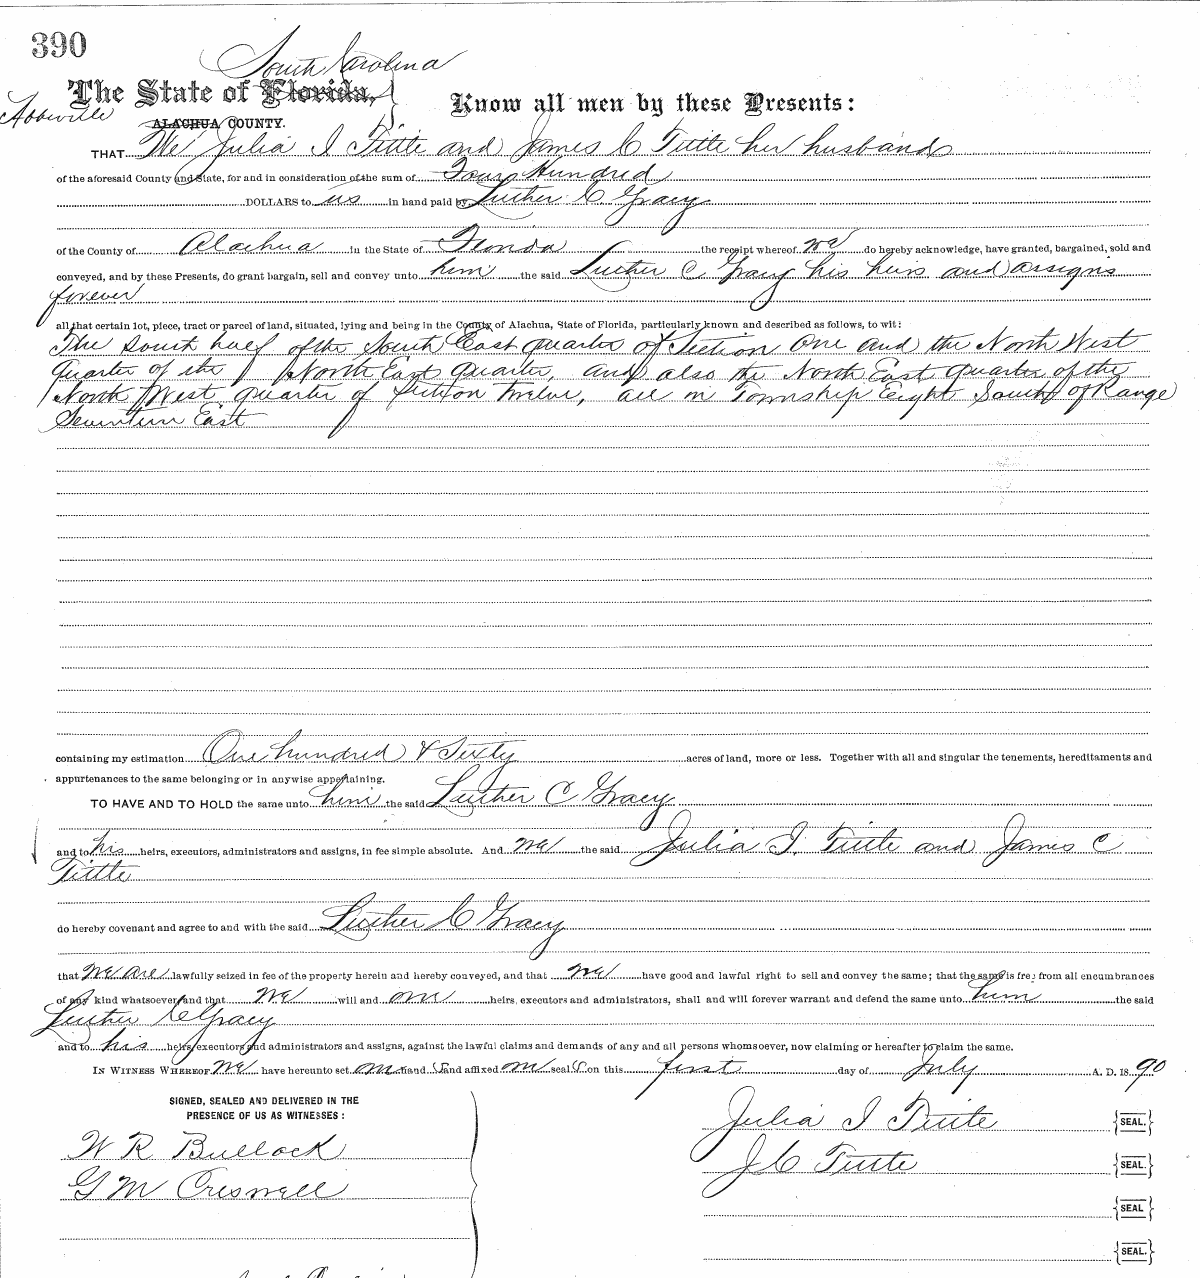 390
South Carolina
The State of Florida,
Know all men by these Presents:
Abbeville
ALACHUA COUNTY.
THAT We Julia I Tittle and James C Tittle her husband
of the aforesaid County and State, for and in consideration of the sum of Four Hundred
DOLLARS to us in hand paid by Luther C Gracy
of the County of Alachua in the State of Florida the receipt whereof we do hereby acknowledge, have granted, bargained, sold and
conveyed, and by these Presents, do grant bargain, sell and convey unto him the said Luther C Gracy his heirs and assigns
forever
all that certain lot, piece, tract or parcel of land, situated, lying and being in the County of Alachua, State of Florida, particularly known and described as follows, to wit:
The South half of the South East quarter of Section One and the North West
Quarter of the North East quarter, and also the North East quarter of the
North West quarter of Section Twelve, all in Township Eight South of Range
Seventeen East
containing my estimation One hundred & Sixty acres of land, more or less. Together with all and singular the tenements, hereditaments and
appurtenances to the same belonging or in anywise appertaining.
TO HAVE AND TO HOLD the same unto him the said Luther C Gracy
and to his heirs, executors, administrators and assigns, in fee simple absolute. And we the said Julia I. Tittle and James C
Tittle
do hereby covenant and agree to and with the said Luther C Gracy
that we are lawfully seized in fee of the property herein and hereby conveyed, and that we have good and lawful right to sell and convey the same; that the same is free from all encumbrances
of any kind whatsoever, and that we will and our heirs, executors and administrators, shall and will forever warrant and defend the same unto him the said
Luther C Gracy
and to his heirs, executors and administrators and assigns, against the lawful claims and demands of any and all persons whomsoever, now claiming or hereafter to claim the same.
IN WITNESS WHEREOF we have hereunto set our hand s and affixed our seal s on this first day of July A. D. 1890
SIGNED, SEALED AND DELIVERED IN THE
PRESENCE OF US AS WITNESSES:
Julia I Tittle SEAL.
W R Bullock
J C Tittle SEAL.
G M Creswell
SEAL
SEAL.